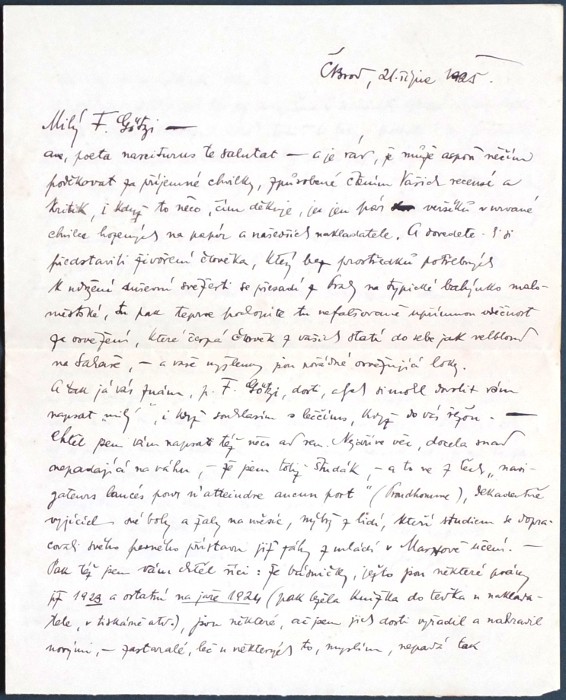 Č. Brod, 21. října 1925.
Milý F. Götzi —
ave, poeta nasciturus te salutat — a je rád, že může aspoň něčím
poděkovat za příjemné chvilky, způsobené čtením Vašich recensí a
kritik, i když to něco, čím děkuje, jen pár veršíků v urvané
chvilce hozených na papír a našedších nakladatele. A dovedete-li si
představiti živoření člověka, který bez prostředků potřebných
k udržení duševní svěžesti se přesadí z Prahy na typické bahýnko malo-
městské, tu pak teprve pochopíte tu nefalšovanou upřímnou vděčnost
za osvěžení, které čerpá člověk z vašich statí do sebe jak velbloud
na Sahaře, — a vaše myšlenky jsou pořádně osvěžující loky.
A tak já vás znám, p. F. Götzi, dosti, abych si mohl dovolit vám
napsat „milý“, i když souhlasím s leččíms, když do vás řežou. —
Chtěl jsem vám napsat též něco ad rem. Nejdříve věc, docela snad
nepadající na váhu, — že jsem totiž študák, — a to ne z těch „navi-
gateurs lancés pour n'atteindre aucun port“ (Prudhomme), dekadentně
vyjících své boly a žaly na měsíc, nýbrž z lidí, kteří studiem se dopra-
covali svého pevného přístavu již záhy z mládí v Marxově učení. —
Pak též jsem vám chtěl říci: že básničky, jejichž jsou některé
již 1923 a ostatní na jaře 1924 (pak ležela knížka do teďka u naklada-
tele, v tiskárně atd.), jsou některé, ač jsem jich dosti vyřadil a nahradil
novými, — zastaralé, leč u některých to, myslím, nepadá tak